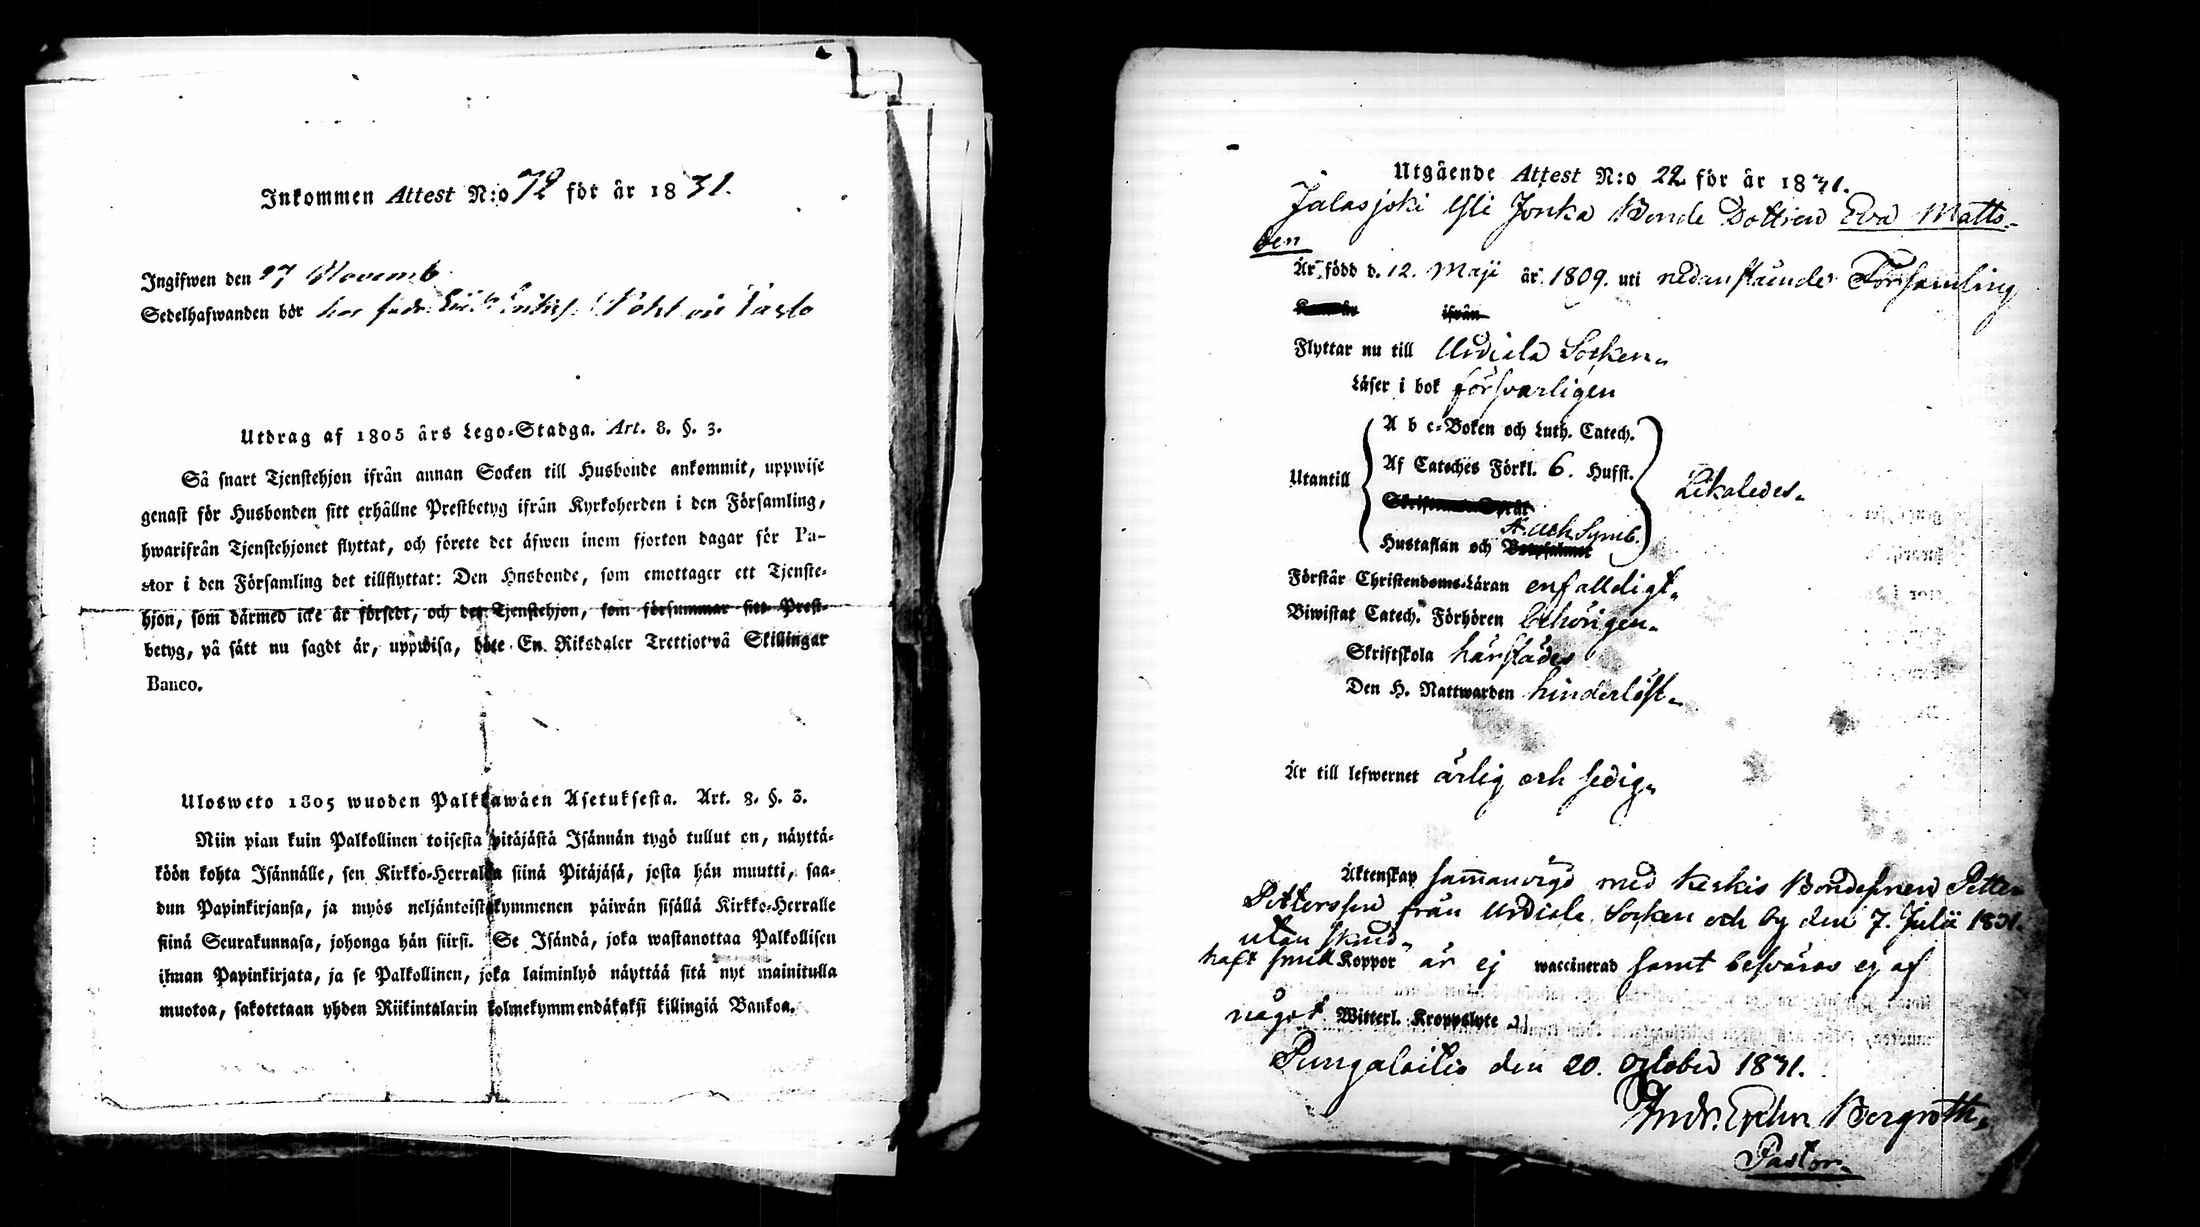 Inkommen Attest N:o 72 för år 1831.
Ingifwen den 27 Novemb.
Sedelhafwanden bör hos
Utdrag af 1805 års Lego-Stadga. Art. 8. §. 3.
Så snart Tjenstehjon ifrån annan Socken till Husbonde ankommit, uppwise
genast för Husbonden sitt erhållne Prestbetyg ifrån Kyrkoherden i den Församling,
hwarifrån Tjenstehjonet flyttat, och förete det äfwen inom fjorton dagar för Pa-
stor i den Församling det tillflyttat: Den Husbonde, som emottager ett Tjenste-
hjon, som därmed icke är försedt, och det Tjenstehjon, som försummar sitt Prest-
betyg, på sätt nu sagdt är, uppwisa, böte En Riksdaler Trettiotvå Skillingar
Banco.
Ulosweto 1805 wuoden Palkkawäen Asetuksesta. Art. 8. §. 3.
Niin pian kuin Palkollinen toisesta pitäjästä Isännän tygö tullut on, näyttä-
köön kohta Isännälle, sen Kirkko-Herralda siinä Pitäjäsä, josta hän muutti, saa-
dun Papinkirjansa, ja myös neljäntoistakymmenen päiwän sisällä Kirkko-Herralle
siinä Seurakunnasa, johonga hän siirsi. Se Isändä, joka wastanottaa Palkollisen
ilman Papinkirjata, ja se Palkollinen, joka laiminlyö näyttää sitä nyt mainitulla
muotoa, sakotetaan yhden Riikintalarin kolmekymmendäkaksi killingiä Bankoa.
Utgående Attest N:o 22 för år 1831.
Jalasjoki Yli Jouka Bonde Dottren Eva Matts-
Är född d. 12. Maji år 1809. uti nedanstående Församling
ifrån
Flyttar nu till Urdiala Socken
Läser i bok försvarligen
A b c-Boken och Luth. Catech.
Af Cateches Förkl. 6. Hufst.
Utantill
Likaledes.
A. och Symb.
Hustaflan och
Förstår Christendoms-Läran enfaldigt
Biwistat Catech. Förhören behörigen
Skriftskola härstädes
Den H. Nattwarden hinderlöst
Är till lefwernet ärlig och sedig
Äktenskap sammanvigd med Keskis Bondesonen Petter
Pettersson från Urdiala Socken och by den 7. Julii 1831.
utan
haft små Koppor är ej waccinerad samt besväras ej af
något Witterl. Kroppslyte
Pungalaitio den 20. October 1831.
Bergroth
Pastor